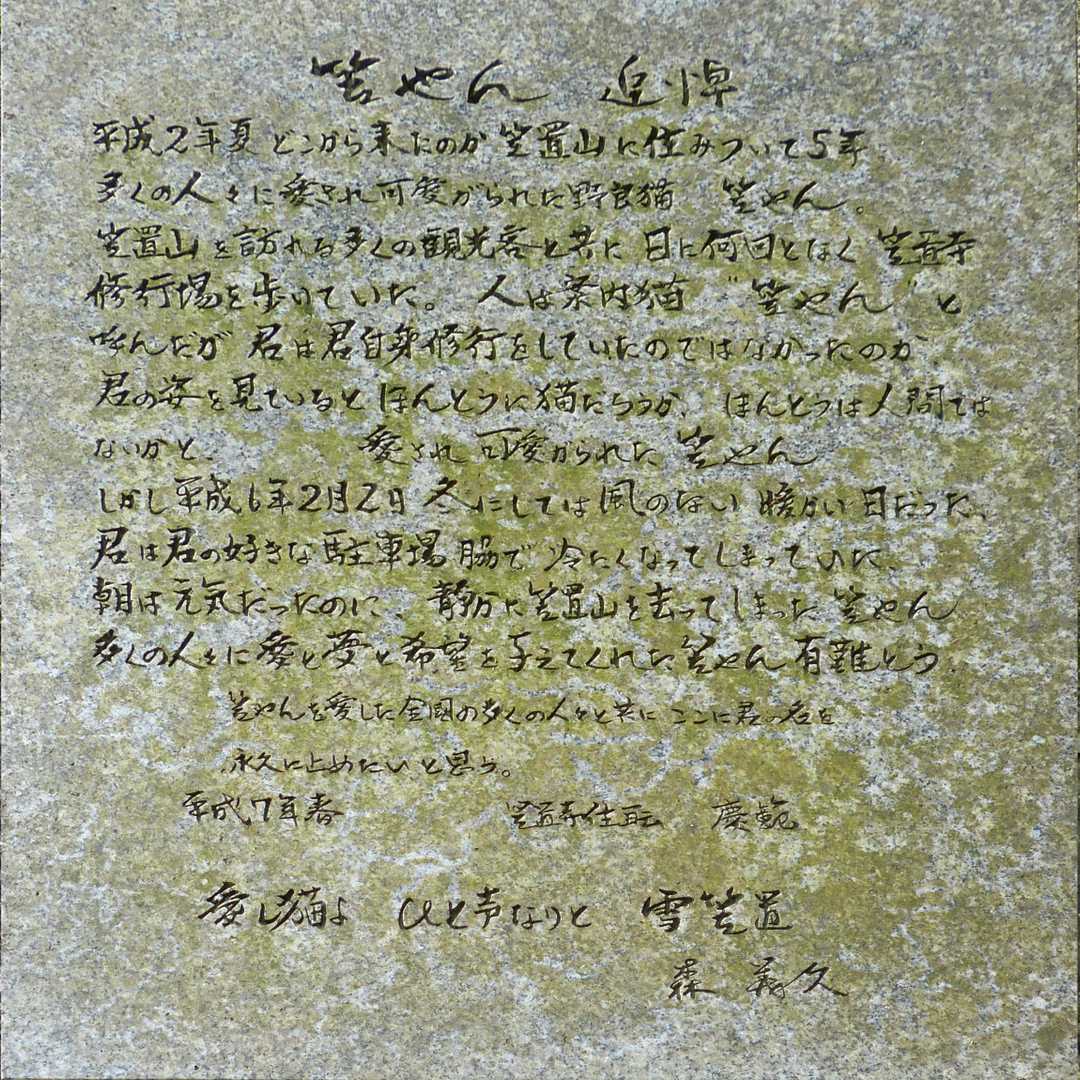 笠やん 追悼
平成2年夏 どこから来たのか 笠置山に住みついて5年
多くの人々に愛され可愛がられた野良猫 笠やん。
笠置山を訪れる多くの観光客と共に 日に何回となく 笠置寺
修行場を歩いていた。 人は案内猫 “笠やん”と
呼んだが 君は君自身修行をしていたのではなかったのか
君の姿を見ているとほんとうに猫だろうか、ほんとうは人間では
ないかと、 愛され可愛がられた 笠やん
しかし平成6年2月2日 冬にしては風のない 暖かい日だった、
君は君の好きな駐車場脇で 冷たくなってしまっていた、
朝は元気だったのに、静かに笠置山を去ってしまった笠やん
多くの人々に愛と夢と希望を与えてくれた笠やん有難とう
笠やんを愛した全国の多くの人々と共に ここに君の名を
永久に止めたいと思う。
平成7年春 笠置寺住職 慶範
愛し猫よ ひと声なりと 雪笠置
森 義久